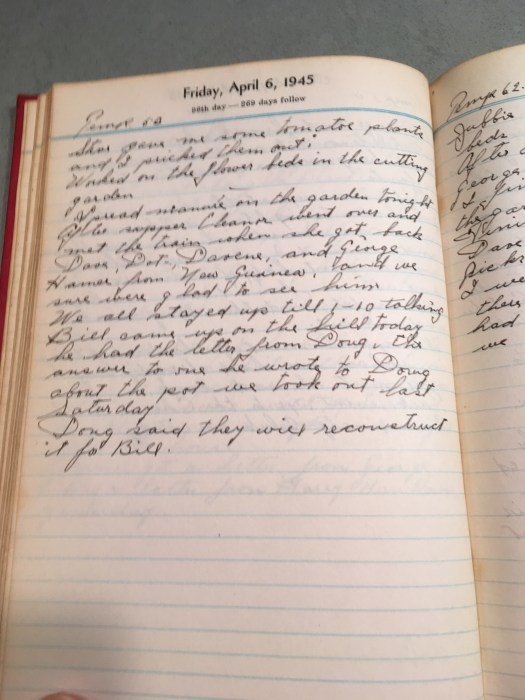 Friday, April 6, 1945
96th day — 269 days follow
Temp 60
gave me some tomatoe plants
and I pricked them out.
Worked on the flower beds in the cutting
garden
Spread manure on the garden tonight
After supper Eleanor went over and
met the train when she got back
Dave, Dot, Davene, and George
Hamer from New Guinea, and we
sure were glad to see him
We all stayed up till 1-10 talking
Bill came up on the hill today
he had the letter from Doug, the
answer to one he wrote to Doug
about the pot we took out last
Saturday
Doug said they will reconstruct
it for Bill.
Temp 62
Jubbie
beds
After
George
& Jim
the gar
Dave
Pickr
I we
there
had
we